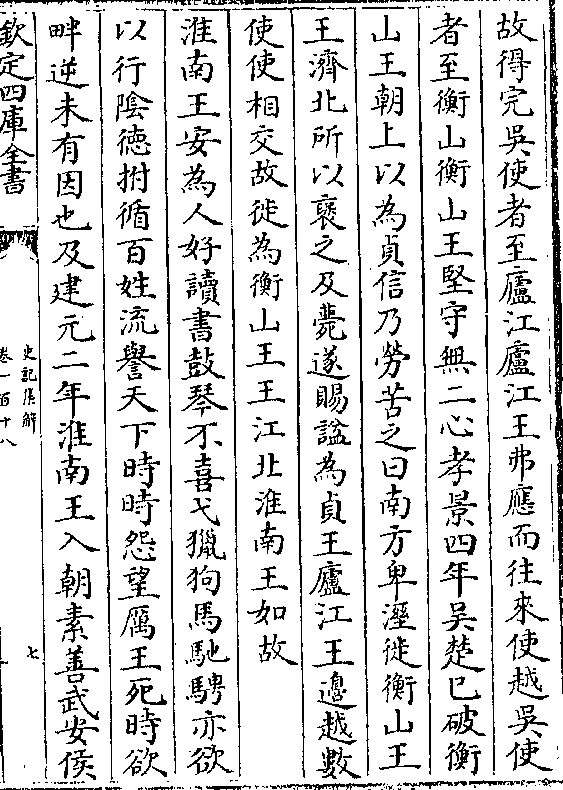 故得完吳使者至廬江廬江王弗應而往來使越吳使
者至衡山衡山王堅守無二心孝景四年吳楚已破衡
山王朝上以為貞信乃勞苦之曰南方卑溼徙衡山王
王濟北所以襃之及薨遂賜謚為貞王廬江王邊越數
使使相交故徙為衡山王王江北淮南王如故
淮南王安為人好讀書鼓琴不喜弋獵狗馬馳騁亦欲
以行陰徳拊循百姓流譽天下時時怨望厲王死時欲
畔逆未有因也及建元二年淮南王入朝素善武安侯
欽定四庫全書
史記集解
卷一百十八
七